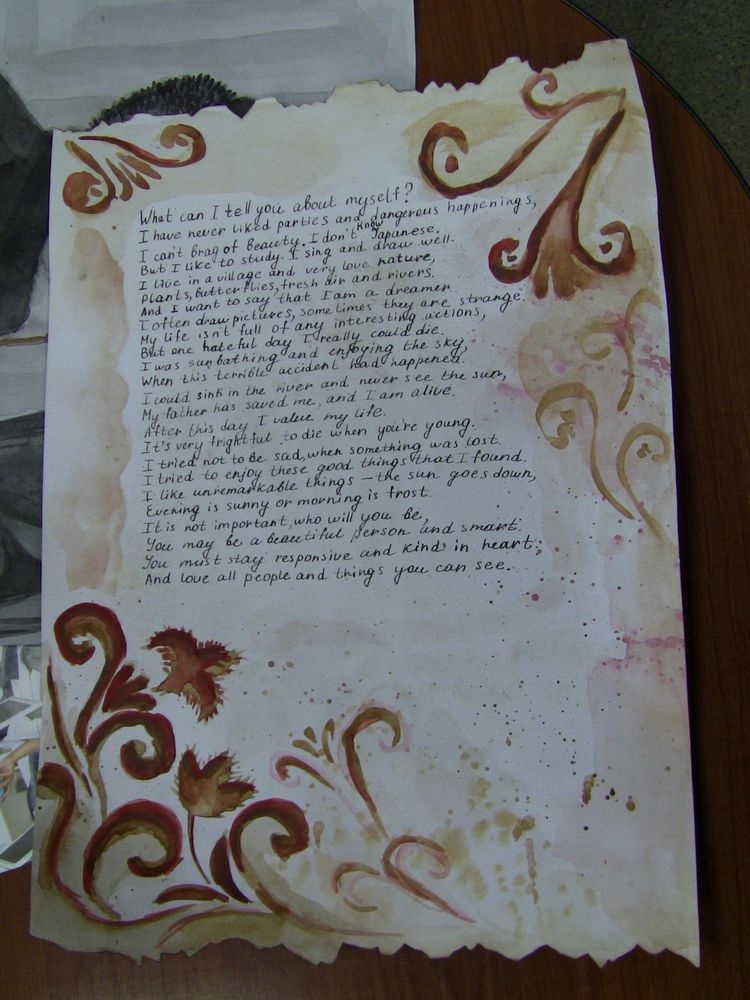 What can I tell you about myself?
I have never liked parties and dangerous happenings,
I can't brag of beauty. I don't know Japanese.
But I like to study. I sing and draw well.
I live in a village and very love nature,
Plants, butterflies, fresh air and rivers.
And I want to say that I am a dreamer.
I often draw pictures, sometimes they are strange.
My life isn't full of any interesting actions,
But one hateful day I really could die.
I was sunbathing and enjoying the sky,
When this terrible accident had happened.
I could sink in the river and never see the sun,
My father has saved me, and I am alive.
After this day I value my life.
It's very frightful to die when you're young.
I tried not to be sad, when something was lost.
I tried to enjoy these good things that I found.
I like unremarkable things – the sun goes down,
Evening is sunny or morning is frost.
It is not important, who will you be,
You may be a beautiful person and smart.
You must stay responsive and kind in heart,
And love all people and things you can see.